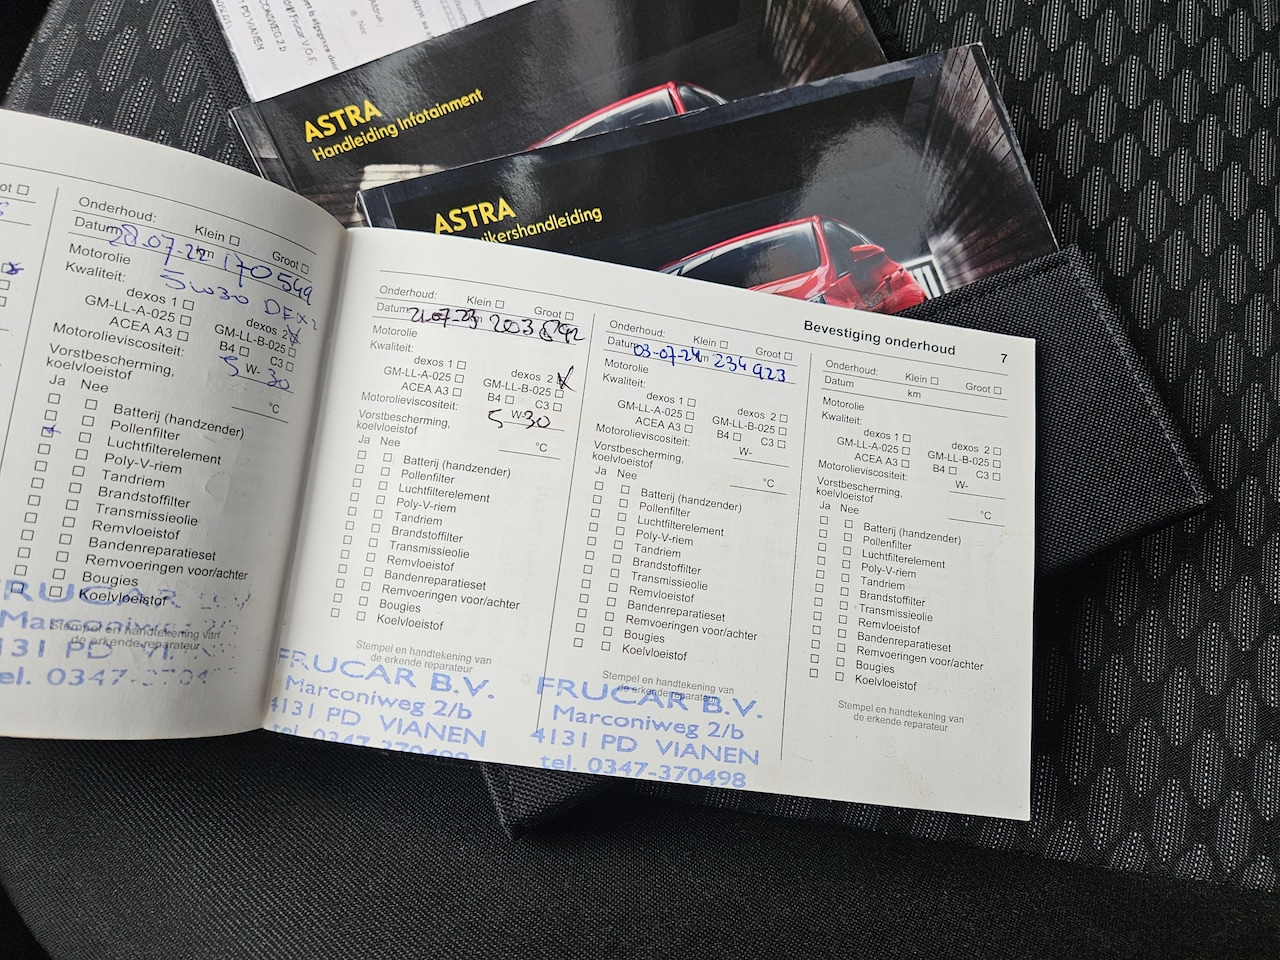 ASTRA
Handleiding Infotainment
ASTRA
ikershandleiding
PD VIANEN
Frucar V.O.F.
Nee
ot
Onderhoud: Klein Groot
Datum 28.07-22 km 170549
Motorolie 5W30 DEX2
Kwaliteit:
dexos 1 dexos 2
GM-LL-A-025 GM-LL-B-025
ACEA A3 B4 C3
Motorolieviscositeit: 5 W- 30
Vorstbescherming,
koelvloeistof °C
Ja Nee
Batterij (handzender)
Pollenfilter
Luchtfilterelement
Poly-V-riem
Tandriem
Brandstoffilter
Transmissieolie
Remvloeistof
Bandenreparatieset
Remvoeringen voor/achter
Bougies
Koelvloeistof
Stempel en handtekening van
de erkende reparateur
FRUCAR
Marconiweg
131 PD
el. 0347-
Bevestiging onderhoud 7
Onderhoud: Klein Groot
Datum 21.07-23 203892
Motorolie
Kwaliteit:
dexos 1 dexos 2
GM-LL-A-025 GM-LL-B-025
ACEA A3 B4 C3
Motorolieviscositeit: 5 W-30
Vorstbescherming,
koelvloeistof °C
Ja Nee
Batterij (handzender)
Pollenfilter
Luchtfilterelement
Poly-V-riem
Tandriem
Brandstoffilter
Transmissieolie
Remvloeistof
Bandenreparatieset
Remvoeringen voor/achter
Bougies
Koelvloeistof
Stempel en handtekening van
de erkende reparateur
FRUCAR B.V.
Marconiweg 2/b
4131 PD VIANEN
tel. 0347-370498
Onderhoud: Klein Groot
Datum 03-07-24 km 234923
Motorolie
Kwaliteit:
dexos 1 dexos 2
GM-LL-A-025 GM-LL-B-025
ACEA A3 B4 C3
Motorolieviscositeit: W-
Vorstbescherming,
koelvloeistof °C
Ja Nee
Batterij (handzender)
Pollenfilter
Luchtfilterelement
Poly-V-riem
Tandriem
Brandstoffilter
Transmissieolie
Remvloeistof
Bandenreparatieset
Remvoeringen voor/achter
Bougies
Koelvloeistof
Stempel en handtekening van
de erkende reparateur
FRUCAR B.V.
Marconiweg 2/b
4131 PD VIANEN
tel. 0347-370498
Onderhoud: Klein Groot
Datum km
Motorolie
Kwaliteit:
dexos 1 dexos 2
GM-LL-A-025 GM-LL-B-025
ACEA A3 B4 C3
Motorolieviscositeit: W-
Vorstbescherming,
koelvloeistof °C
Ja Nee
Batterij (handzender)
Pollenfilter
Luchtfilterelement
Poly-V-riem
Tandriem
Brandstoffilter
Transmissieolie
Remvloeistof
Bandenreparatieset
Remvoeringen voor/achter
Bougies
Koelvloeistof
Stempel en handtekening van
de erkende reparateur